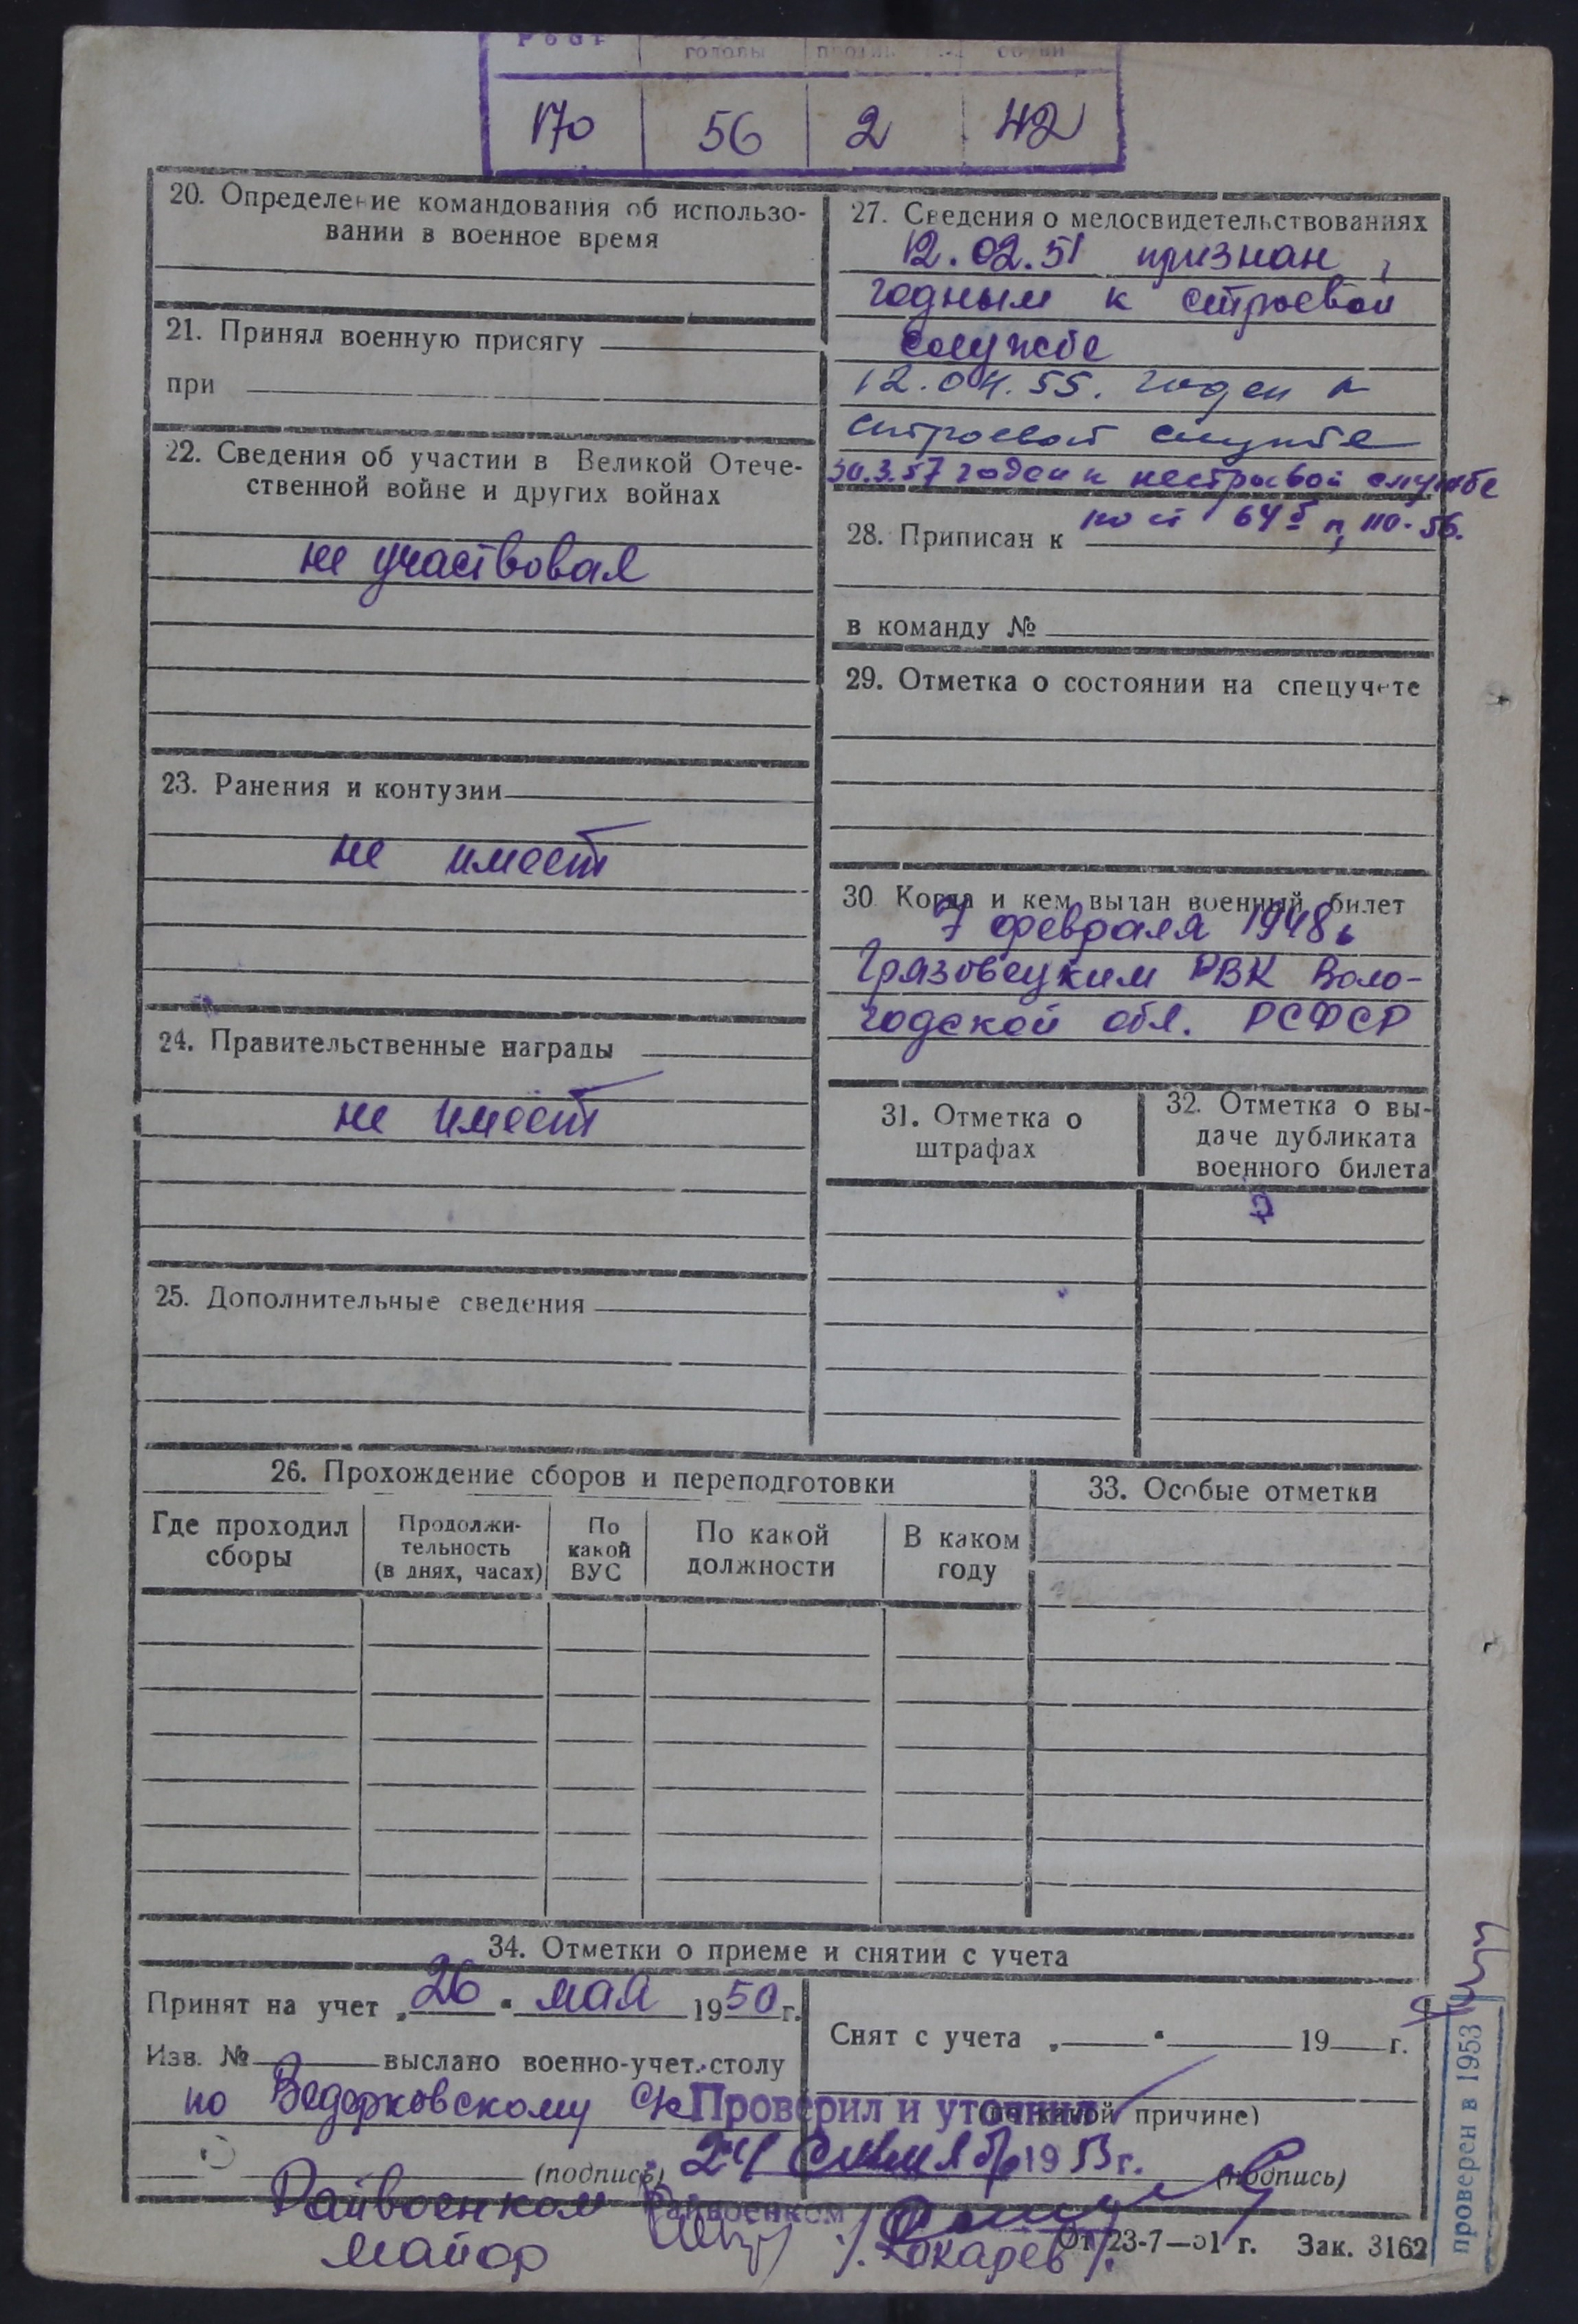 Рост головы
170 56 2 42
20. Определение командования об использо-
вании в военное время
21. Принял военную присягу
при
22. Сведения об участии в Великой Отече-
ственной войне и других войнах
не участвовал
23. Ранения и контузии
не имеет
24. Правительственные награды
не имеет
25. Дополнительные сведения
27. Сведения о медосвидетельствованиях
12.02.51 признан
годным к строевой
службе
12.04.55. годен к
строевой службе
30.3.57 годен к нестроевой службе
по ст 64б п, 110-56.
28. Приписан к
в команду №
29. Отметка о состоянии на спецучете
30. Когда и кем выдан военный билет
7 февраля 1948г
Грязовецким РВК Воло-
годской обл. РСФСР
31. Отметка о
штрафах
32. Отметка о вы-
даче дубликата
военного билета
26. Прохождение сборов и переподготовки
Где проходил
сборы
Продолжи-
тельность
(в днях, часах)
По
какой
ВУС
По какой
должности
В каком
году
33. Особые отметки
34. Отметки о приеме и снятии с учета
Принят на учет „26" мая 1950г.
Изв. № выслано военно-учет. столу
по Ведерковскому с/с
(подпись)
Райвоенком
майор
Снят с учета „ " 19 г.
(по какой причине)
Проверил и уточнил
24 1953г.
(подпись)
Райвоенком
/Токарев/.
От 23-7—51 г. Зак. 3162
проверен в 1953